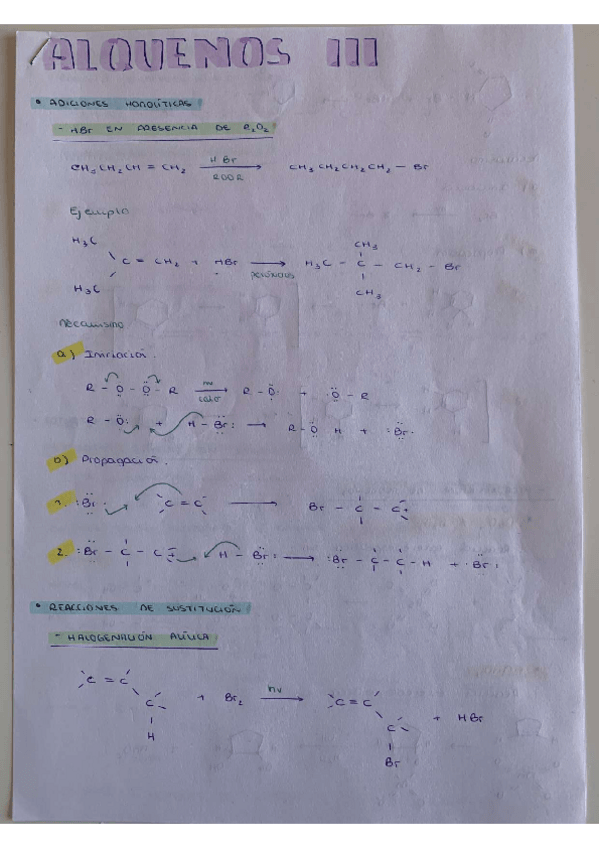 ALQUENOS III
• ADICIONES HOMOLÍTICAS
- HBr EN PRESENCIA DE R2O2
CH3CH2CH = CH2 HBr ROOR CH3CH2CH2CH2 — Br
Ejemplo
H3C CH3
C = CH2 + HBr peróxidos H3C - C - CH2 - Br
H3C CH3
Mecanismo
a) Iniciación.
R - O - O - R hν calor R - O: + :O - R
R - O: + H - Br: R - O H + :Br·
b) Propagación.
1. :Br· C = C Br - C - C
2. :Br - C - C H - Br: :Br - C - C - H + ·Br:
• REACCIONES DE SUSTITUCIÓN
- HALOGENACIÓN ALÍLICA
C = C C = C
C + Br2 hν C + HBr
H Br